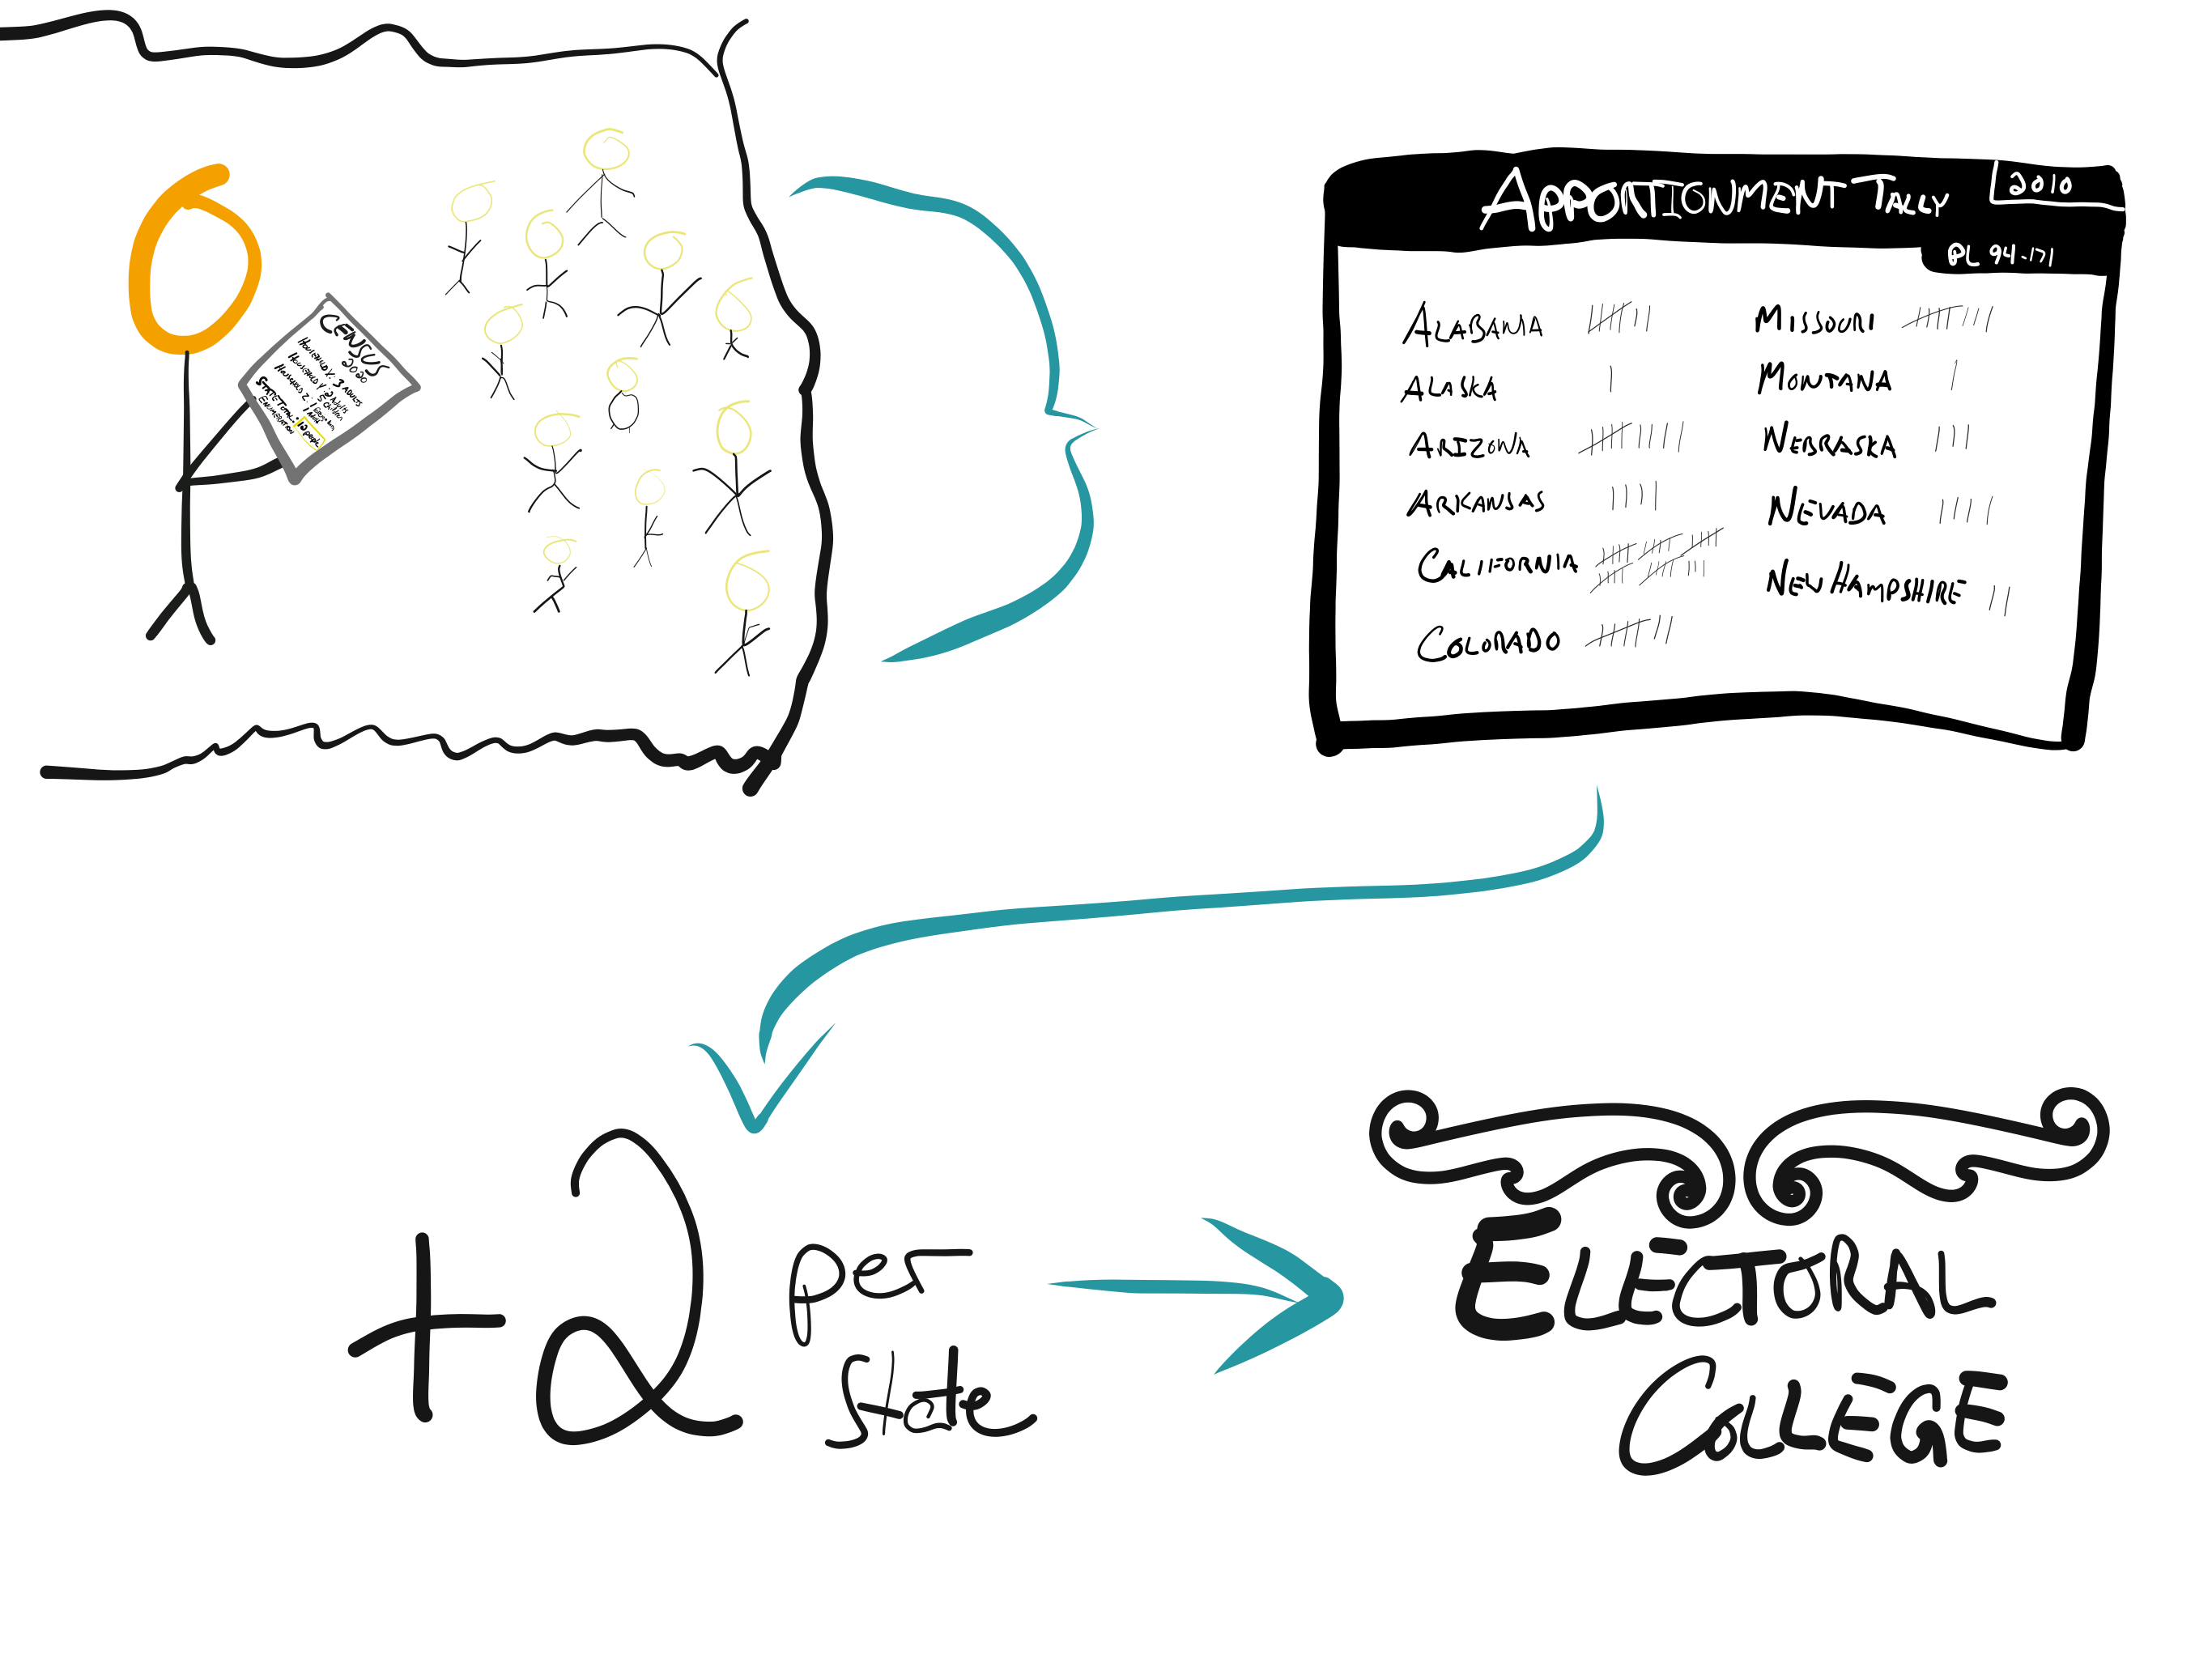 CENSUS
2020
HOUSEHOLD X: 3 ADULTS
HOUSEHOLD Y: 2 Adults
5 Children
HOUSEHOLD Z: 1
STATE TOTAL: 12 people
ENUMERATION
APPORTIONMENT TALLY 2010
PL 94-171
ALABAMA
ALASKA
ARIZONA
ARKANSAS
CALIFORNIA
COLORADO
MISSOURI
MONTANA
NEBRASKA
NEVADA
NEW HAMPSHIRE
+2 per
State
ELECTORAL
COLLEGE